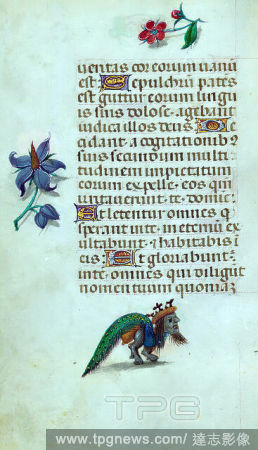 ueritas cor eorum uanū
est · Sepulchrum patēs
est guttur eorum lingu
is suis dolose · agebant
iudica illos deus · De
cidant · a cogitationib⁹
suis secūdum multi
tudinem impietatum
eorum expelle · eos qm̄
irritauerunt · te · domie ·
Et letentur omnes q̄
sperant in te · in eternū ex
ultabunt · et habitabis i
eis · Et gloriabunt̄
in te · omnes qui diligūt
nomen tuum quoniā
TPG
www.tpgnews.com/ 達志影像